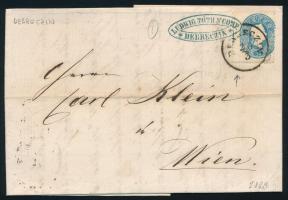 DEBRECZIN
LUDWIG TÓTH & COMP.
DEBRECZIN
Herrn
Carl Klein
Wien.